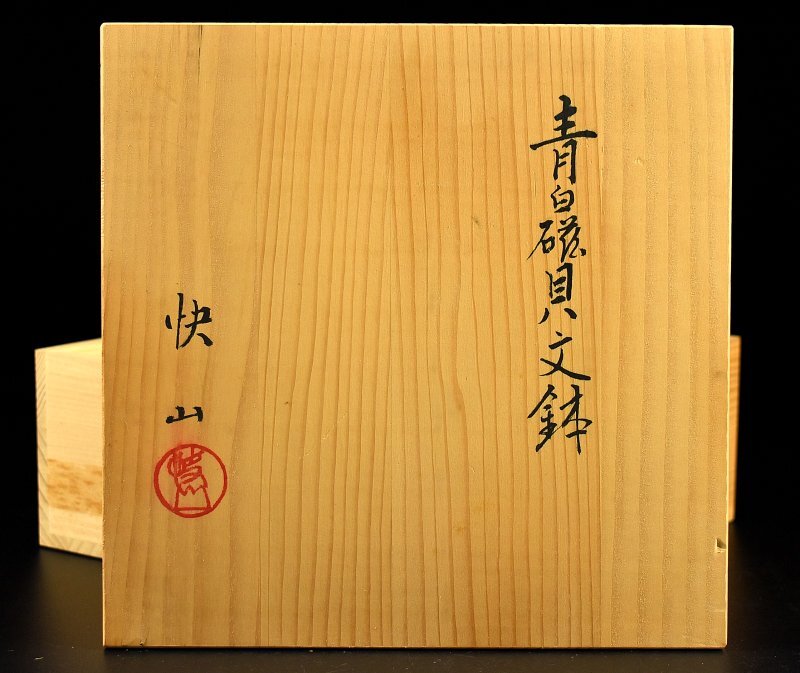 青白磁貝文鉢
快山